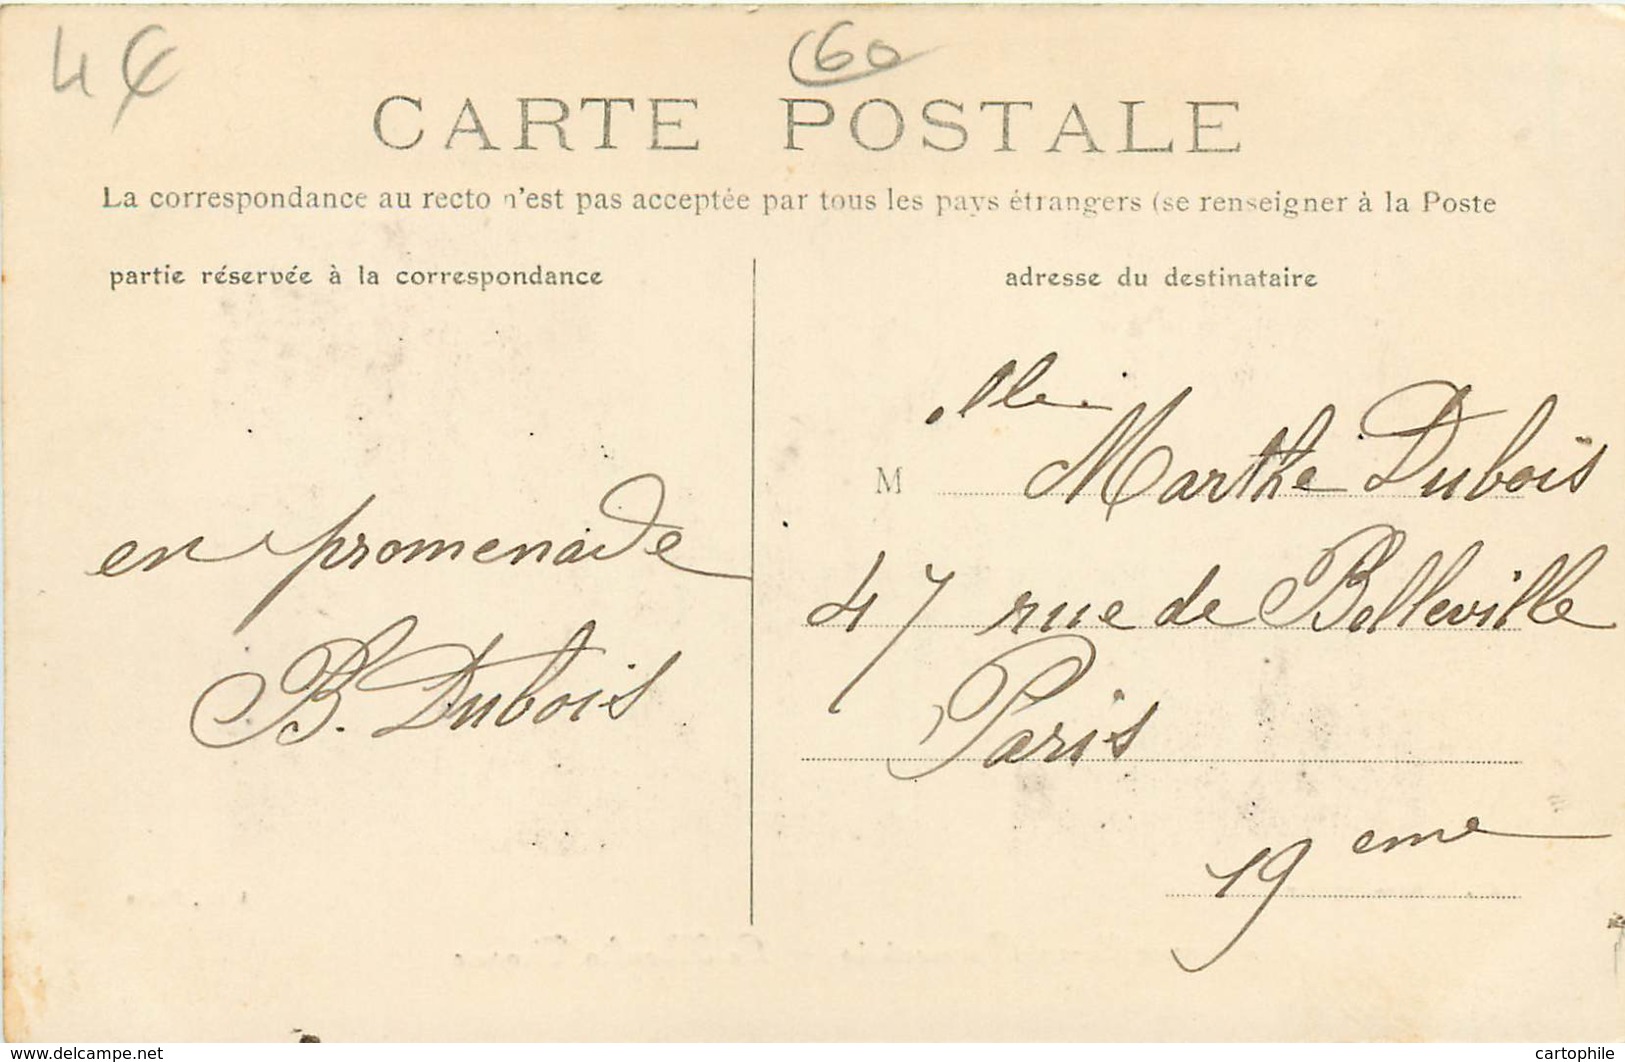 4€
60
CARTE POSTALE
La correspondance au recto n'est pas acceptée par tous les pays étrangers (se renseigner à la Poste
partie réservée à la correspondance
en promenade
B. Dubois
adresse du destinataire
Mlle
M Marthe Dubois
47 rue de Belleville
Paris
19eme
www.delcampe.net
cartophile